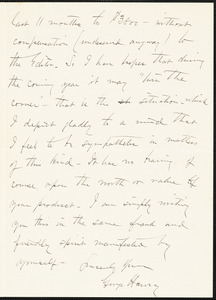 last 11 months to $3800 - without
compensation (indecent anyway) to
the Editor. So I have hopes that during
the coming year it may "turn the
corner" - that is the situation - which
I depict gladly to a mind that
I feel to be sympathetic in matters
of this kind - It has no bearing of
course upon the worth or value of
your product. I am simply writing
you this in the same frank and
friendly spirit manifested by
yourself - Sincerely Yours
George Harvey